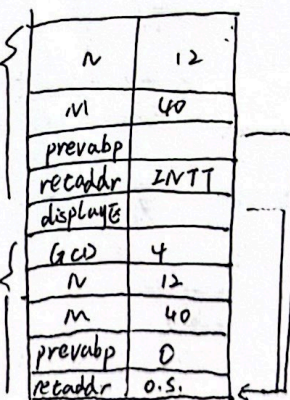 N 12
M 40
prevabp
retaddr INTT
display
GCD 4
N 12
M 40
prevabp 0
retaddr O.S.